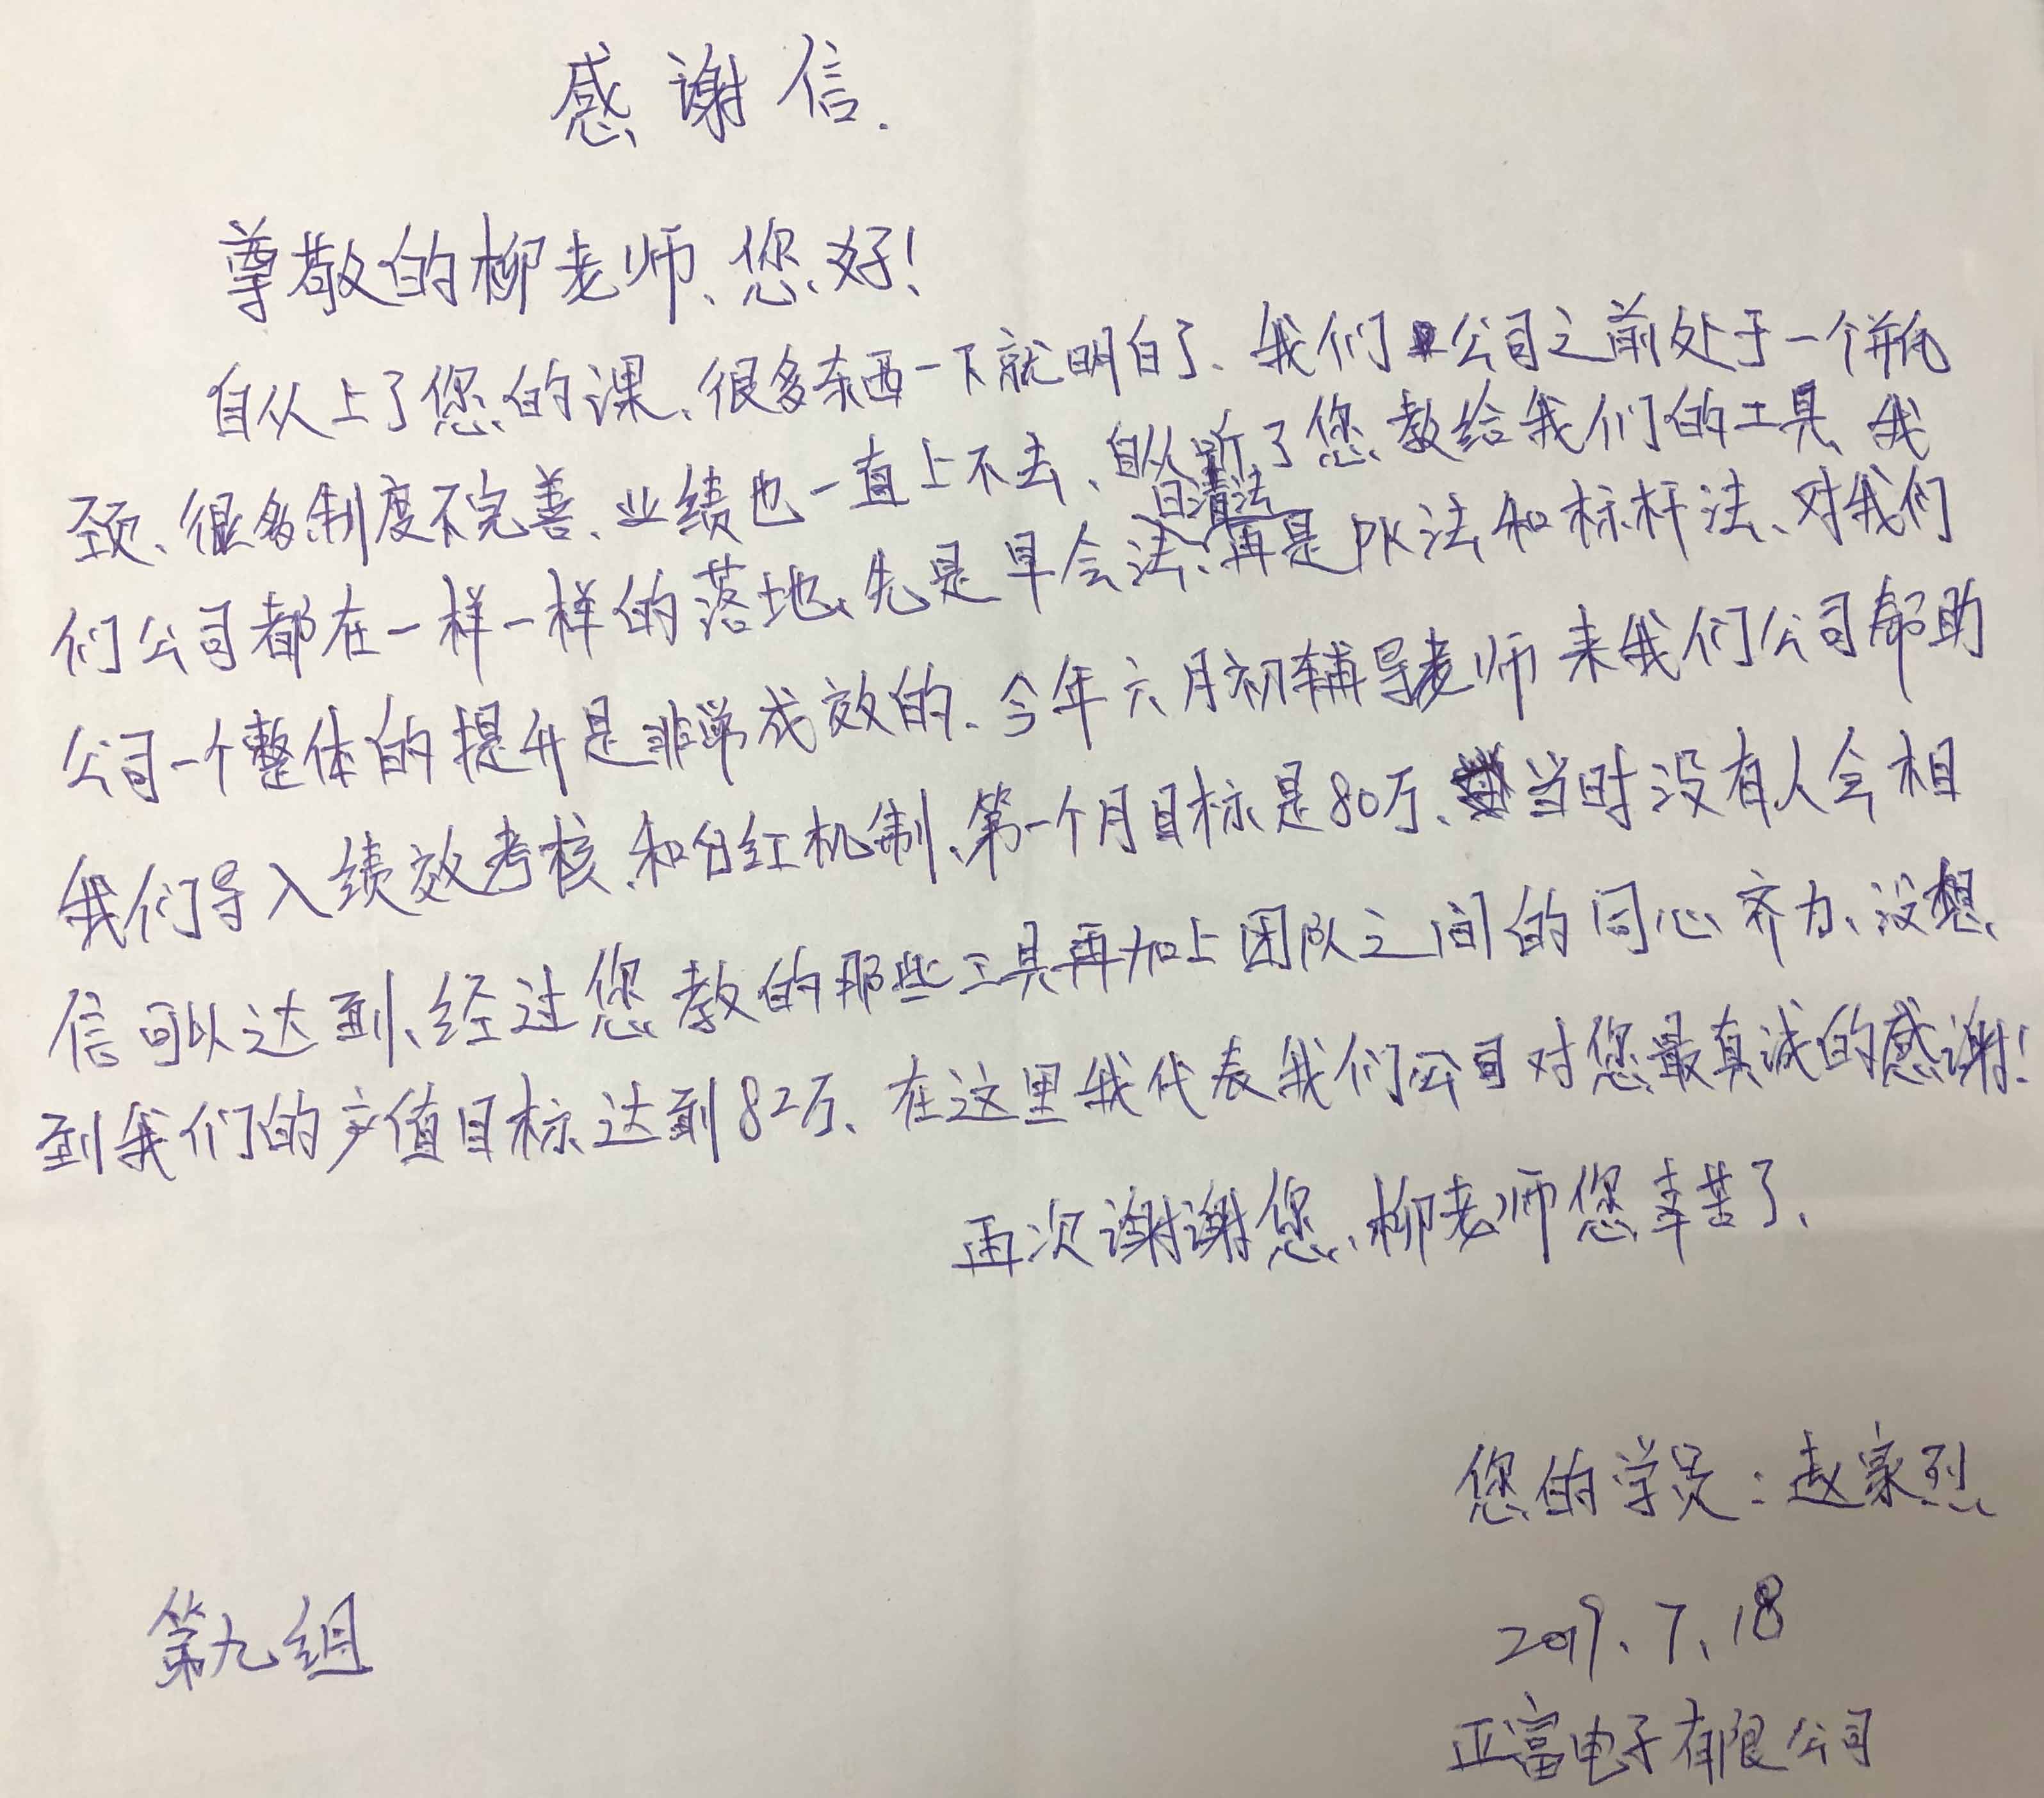 感谢信.
尊敬的柳老师、您好!
自从上了您的课、很多东西一下就明白了、我们公司之前处于一个瓶
颈、很多制度不完善、业绩也一直上不去、自从听了您教给我们的工具、我
日清法
们公司都在一样一样的落地、先是早会法、再是PK法和标杆法、对我们
公司一个整体的提升是非常成效的、今年六月初辅导老师来我们公司帮助
我们导入绩效考核、和分红机制、第一个月目标是80万、当时没有人会相
信可以达到、经过您教的那些工具再加上团队之间的同心齐力、没想
到我们的产值目标达到82万、在这里我代表我们公司对您最真诚的感谢!
再次谢谢您、柳老师您辛苦了、
您的学员:赵家烈
第九组
2019、7、18
正富电子有限公司